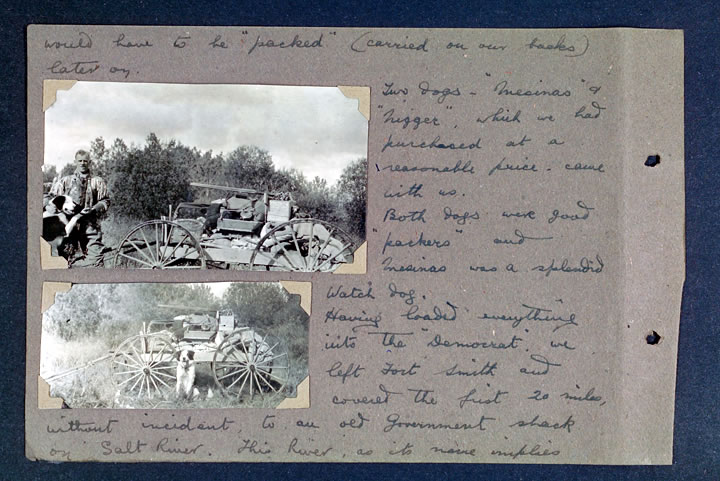 would have to be "packed" (carried on our backs)
later on.
Two dogs - "Mesinas" &
"Nigger", which we had
purchased at a
reasonable price - came
with us.
Both dogs were good
"packers" and
Mesinas was a splendid
Watch dog.
Having loaded everything
into the "Democrat", we
left Fort Smith and
covered the first 20 miles,
without incident, to an old Government shack
on Salt River. This River, as its name implies